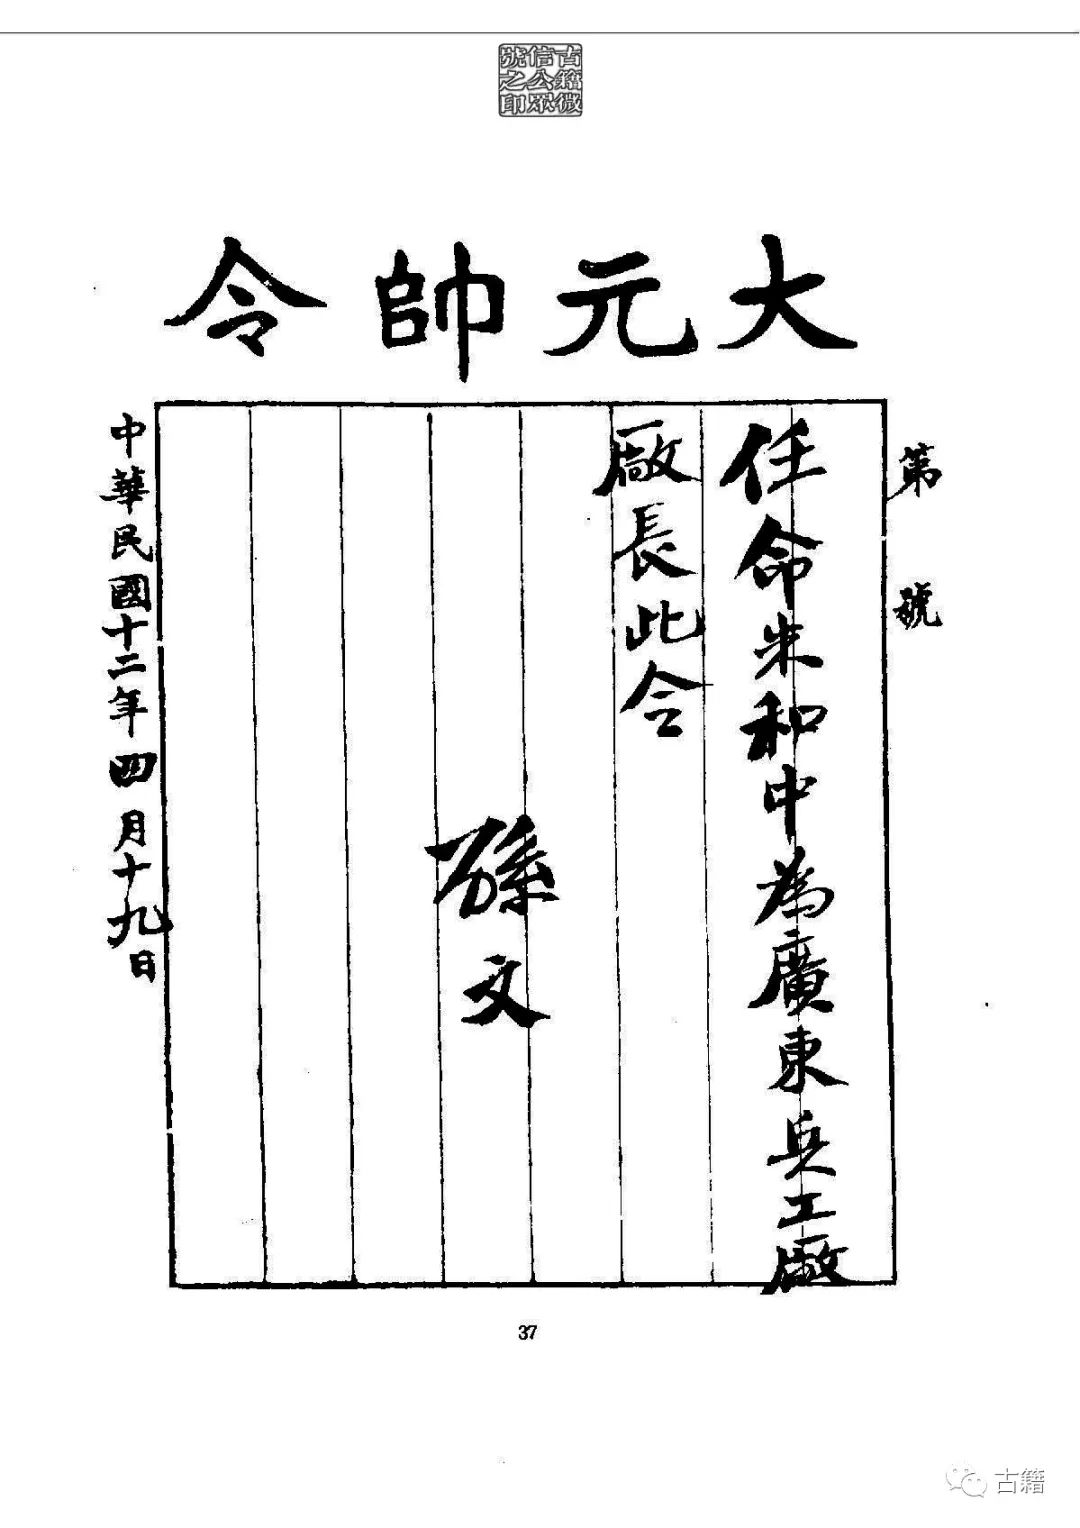 古籍微
信公眾
號之印
大元帥令
第 號
任命朱和中為廣東兵工廠
廠長此令
孫文
中華民國十二年四月十九日
37
古籍